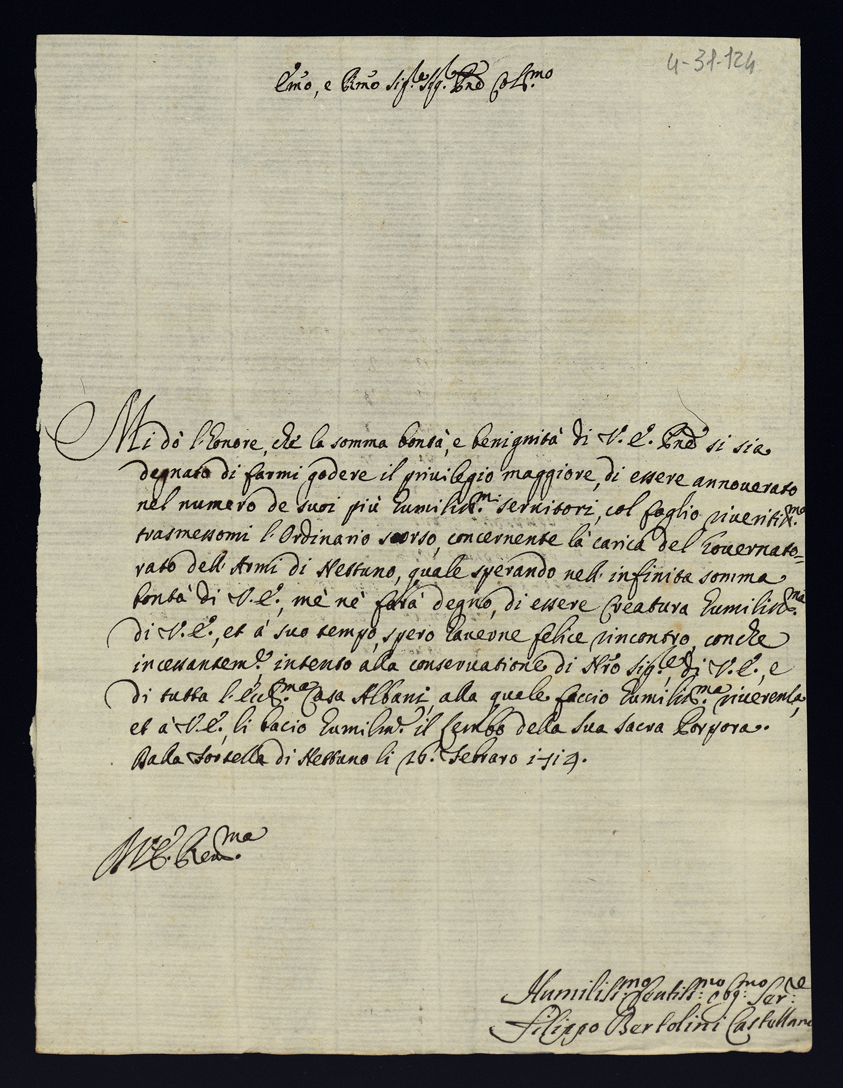 4-31-124
Em̃o, e Rm̃o Sig.re Sig. Prñe Col.mo
Mi dò l'honore, che la somma bontà, e benignità di V. E. Prñe si sia
degnato di farmi godere il privilegio maggiore, di essere annoverato
nel numero de suoi più humiliss.mi servitori, col foglio riveritiss.mo
trasmessomi l'Ordinario scorso, concernente la carica del Governato=
rato dell'Armi di Nettuno, quale sperando nell'infinita somma
bontà di V. E., mè nè farà degno, di essere Creatura humiliss.ma
di V. E., et à suo tempo, spero haverne felice rincontro, con che
incessantem.te intento alla conservatione di Nr̃o Sig.re, di V. E., e
di tutta l'Ecc.ma Casa Albani, alla quale faccio humiliss.ma riverenza,
et à V. E., li bacio humilm.te il lembo della sua sacra Porpora.
Dalla Fortezza di Nettuno li 16. Febraro 1714.
V. E. Rev.ma
Humiliss.mo Obg.mo Ser.re
Filippo Bertolini Castellano